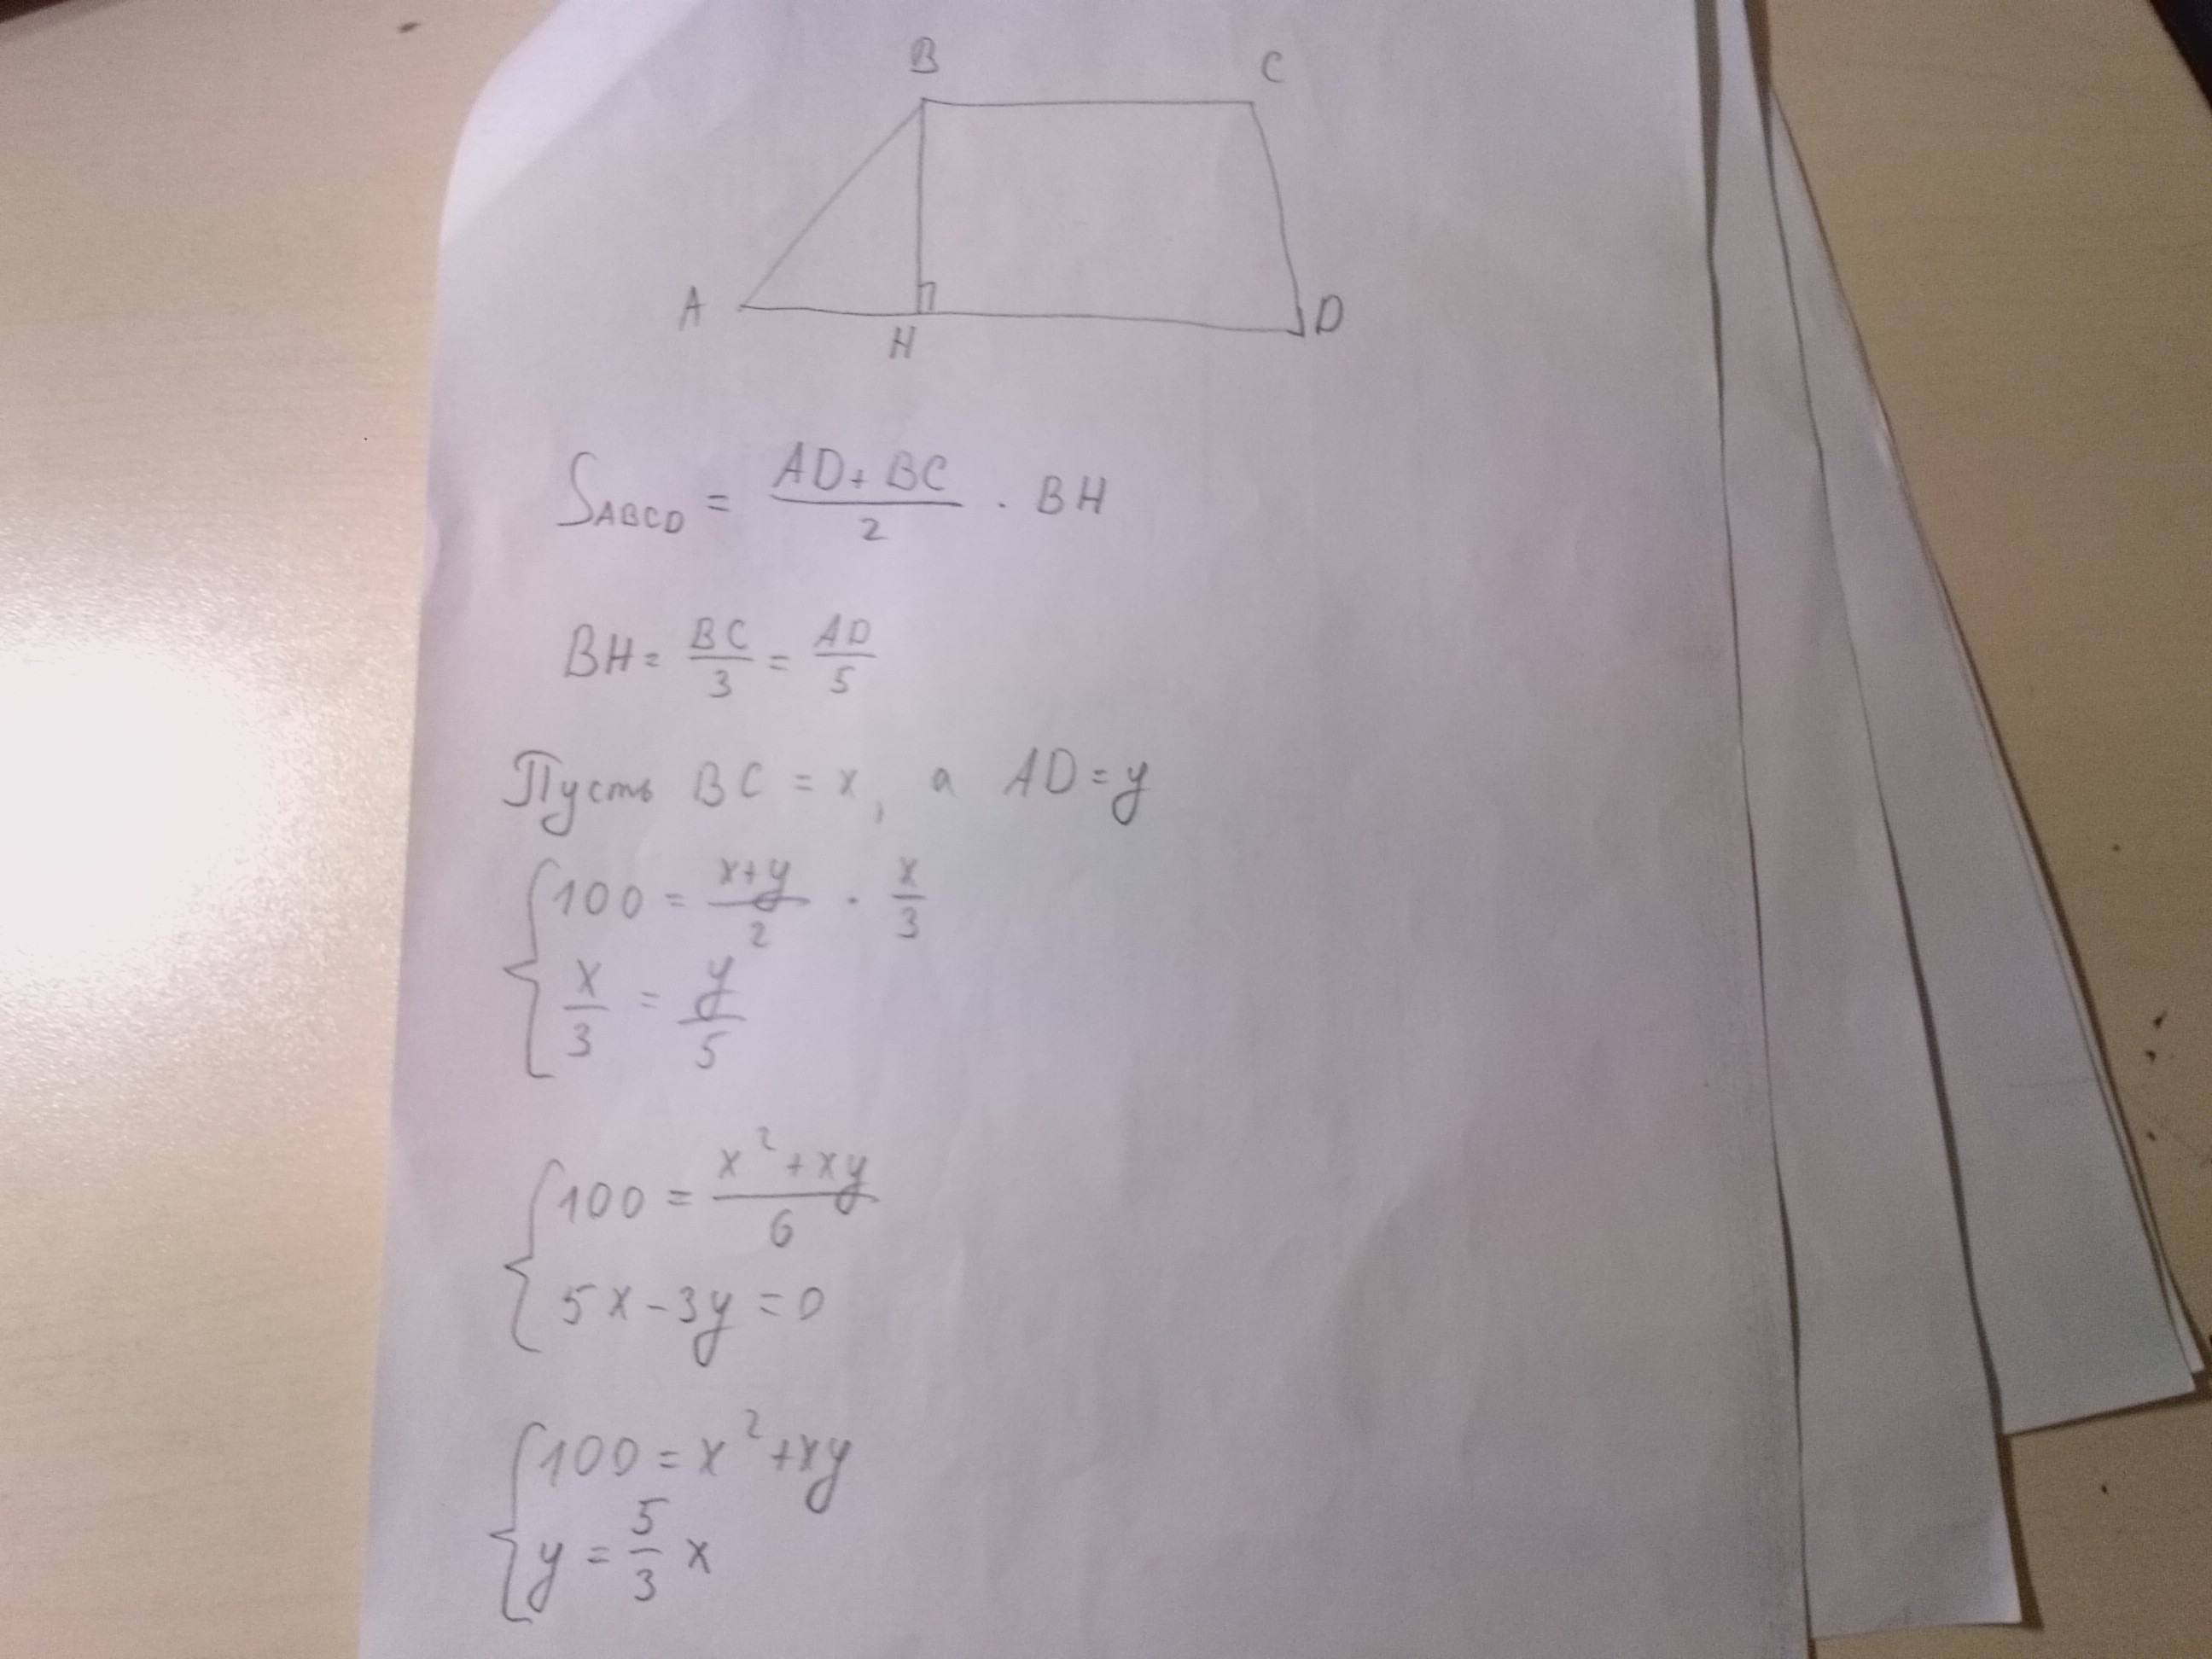 B C
A H D
S_ABCD = (AD + BC)/2 · BH
BH = BC/3 = AD/5
Пусть BC = x, а AD = y
{ 100 = (x+y)/2 · x/3
x/3 = y/5
{ 100 = (x² + xy)/6
5x - 3y = 0
{ 100 = x² + xy
y = 5/3 x